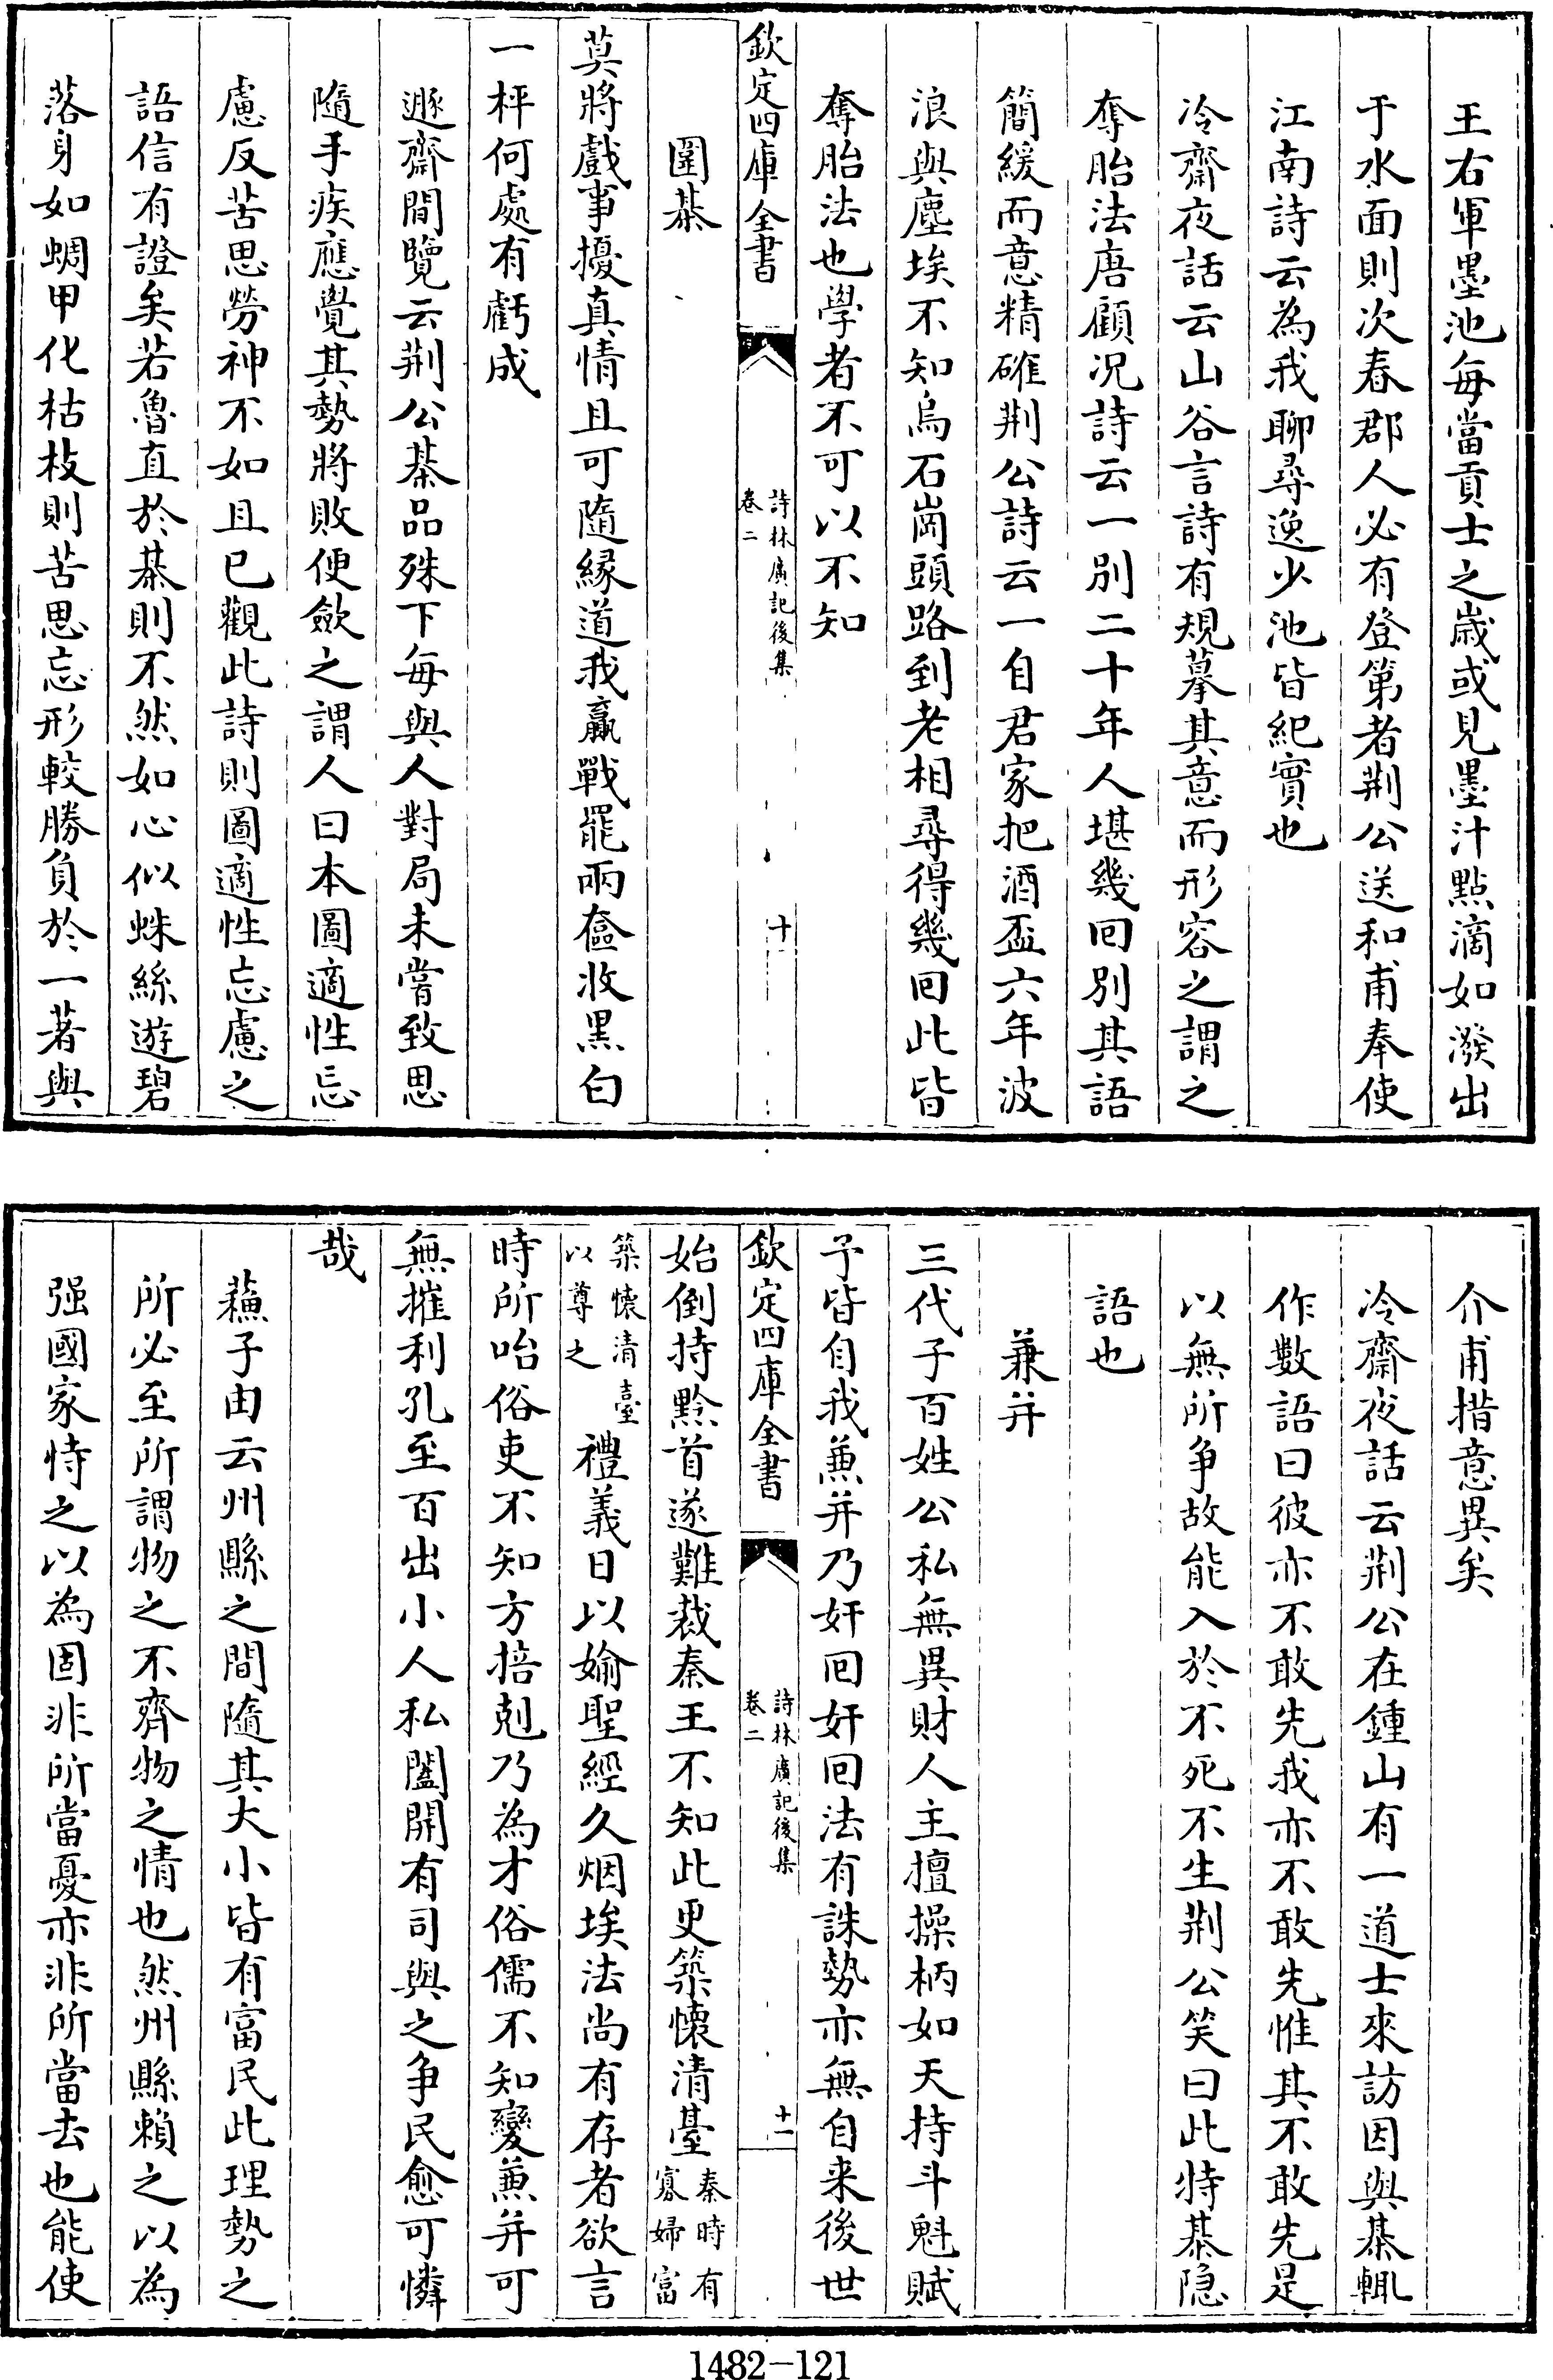 王右軍墨池每當貢士之歲或見墨汁點滴如潑出
于水面則次春郡人必有登第者荆公送和甫奉使
江南詩云為我聊尋逸少池皆紀實也
冷齋夜話云山谷言詩有規摹其意而形容之謂之
奪胎法唐顧况詩云一別二十年人堪幾囘別其語
簡緩而意精確荆公詩云一自君家把酒盃六年波
浪與塵埃不知烏石崗頭路到老相尋得幾囘此皆
奪胎法也學者不可以不知
欽定四庫全書
詩林廣記後集
卷二
十
圍棊
莫將戲事擾真情且可隨緣道我贏戰罷兩奩收黑白
一枰何處有虧成
遯齋閒覽云荆公棊品殊下每與人對局未嘗致思
隨手疾應覺其勢將敗便歛之謂人曰本圖適性忘
慮反苦思勞神不如且已觀此詩則圖適性忘慮之
語信有證矣若魯直於棊則不然如心似蛛絲遊碧
落身如蜩甲化枯枝則苦思忘形較勝負於一著與
介甫措意異矣
冷齋夜話云荆公在鍾山有一道士來訪因與棊輒
作數語曰彼亦不敢先我亦不敢先惟其不敢先是
以無所争故能入於不死不生荆公笑曰此特棊隐
語也
兼并
三代子百姓公私無異財人主擅操柄如天持斗魁賦
予皆自我兼并乃奸囘奸囘法有誅勢亦無自来後世
欽定四庫全書
詩林廣記後集
卷二
十一
始倒持黔首遂難裁秦王不知此更築懷清臺秦時有
寡婦富
築懷清臺
以尊之
禮義日以媮聖經久烟埃法尚有存者欲言
時所咍俗吏不知方掊剋乃為才俗儒不知變兼并可
無摧利孔至百出小人私闔開有司與之争民愈可憐
哉
蘓子由云州縣之間隨其大小皆有富民此理勢之
所必至所謂物之不齊物之情也然州縣賴之以為
强國家恃之以為固非所當憂亦非所當去也能使
1482-121